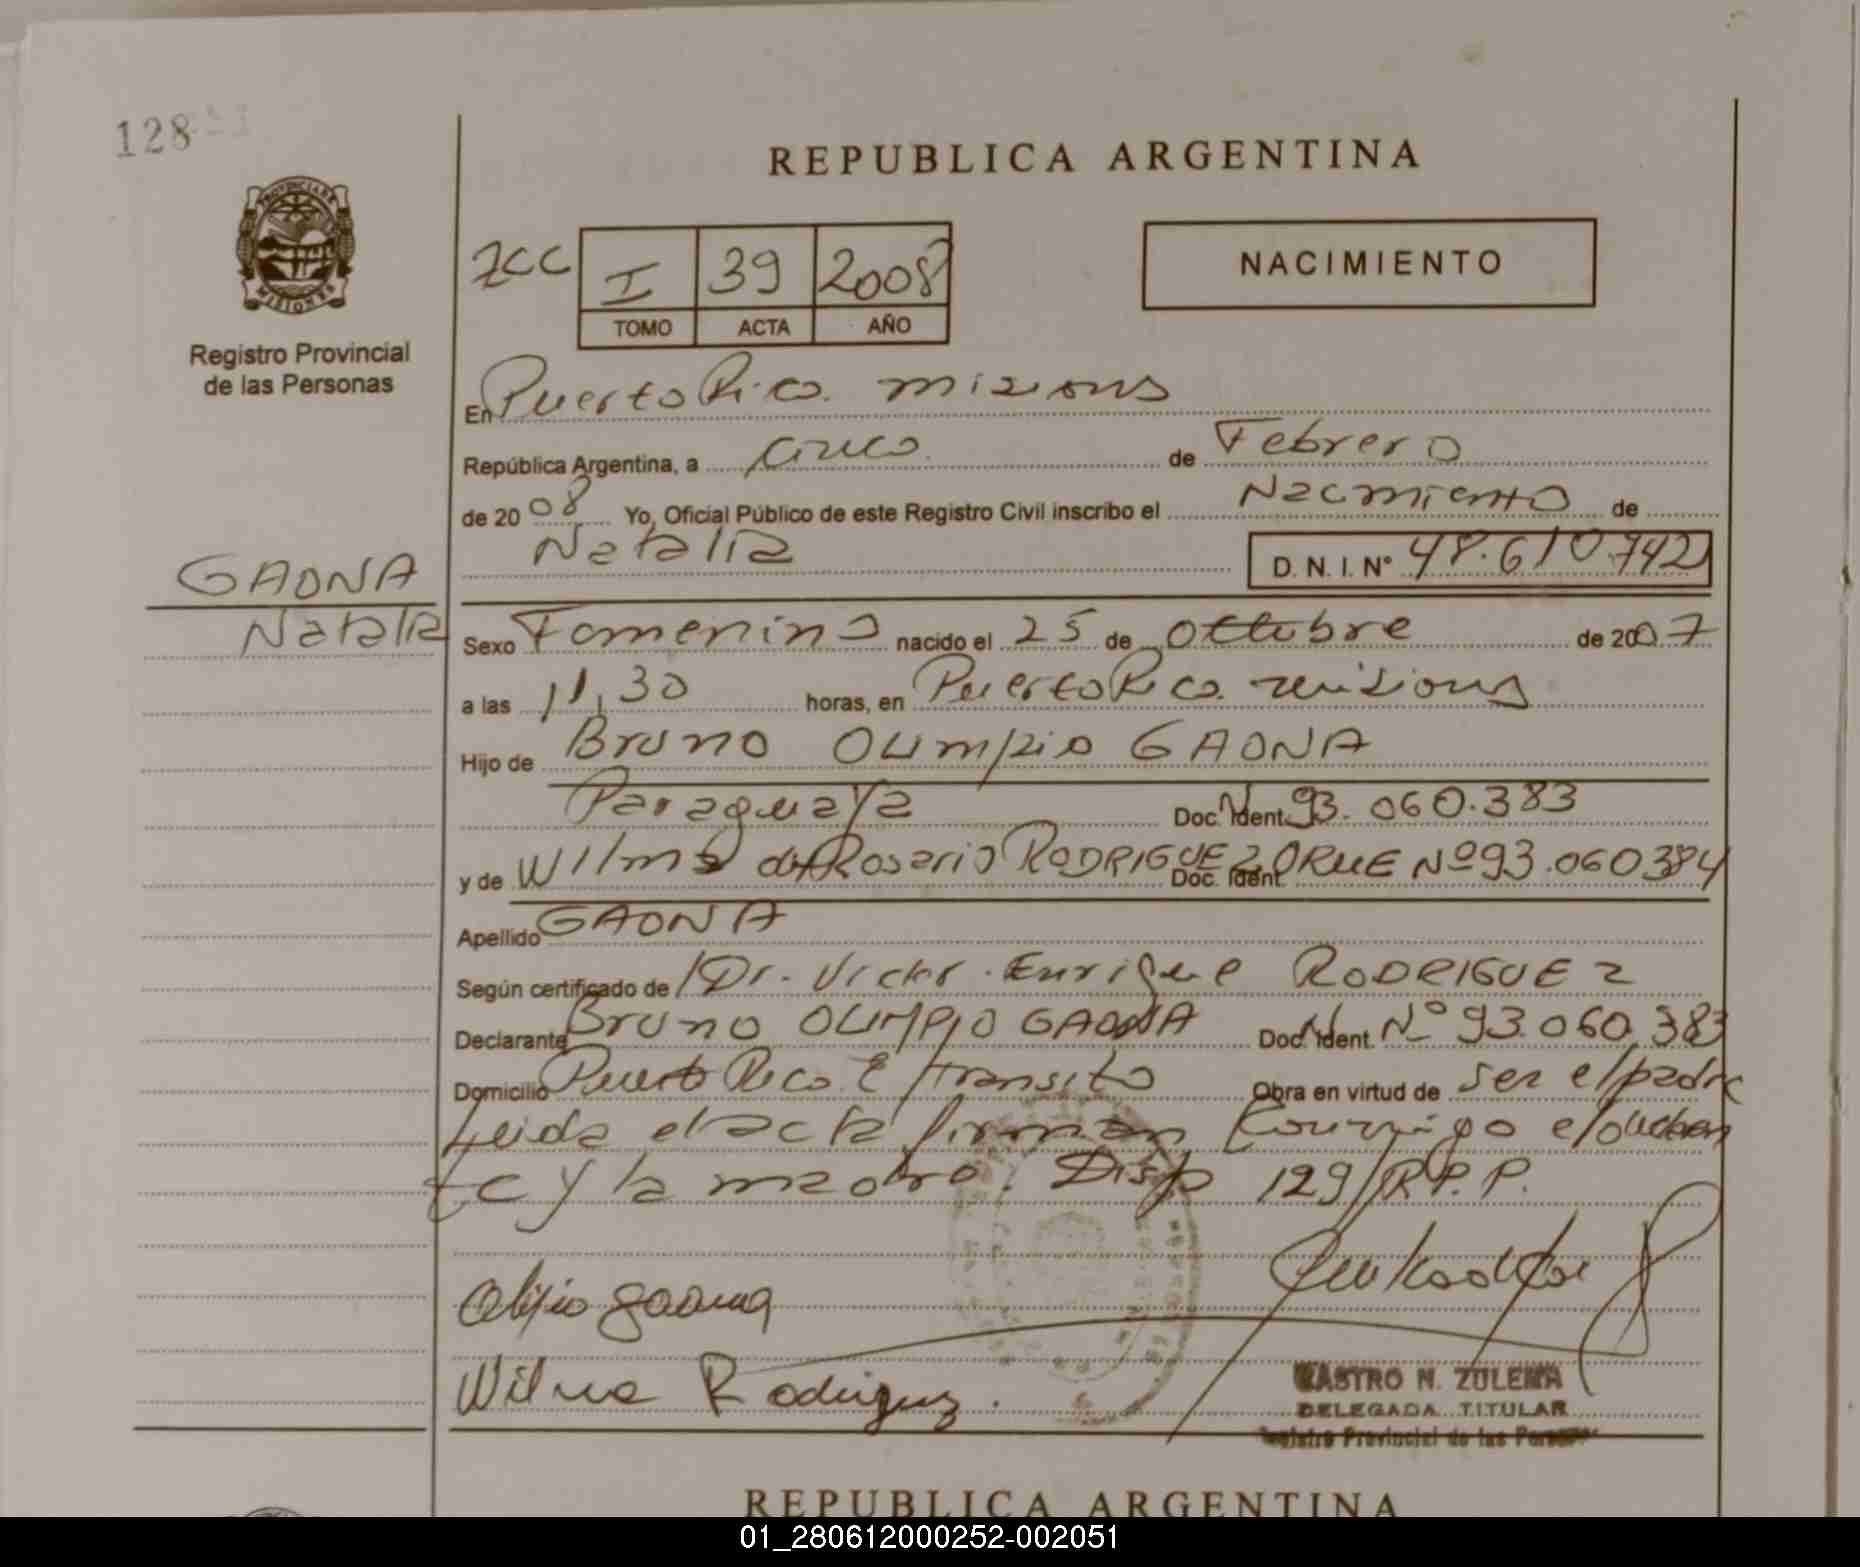 128
PROVINCIA DE
MISIONES
Registro Provincial
de las Personas
REPUBLICA ARGENTINA
I 39 2008
TOMO ACTA AÑO
NACIMIENTO
En Puerto Rico. misiones
República Argentina, a cinco de Febrero
de 2008 Yo, Oficial Público de este Registro Civil inscribo el Nacimiento de
Natalia D. N. I. Nº 48.610.742
GAONA
Natalia
Sexo Femenino nacido el 25 de Octubre de 2007
a las 11,30 horas, en Puerto Rico. misiones
Hijo de Bruno OLimpio GAONA
Paraguaya Doc. Ident. 93.060.383
y de Wilma del Rosario RODRIGUEZ ORUE Doc. Ident. Nº 93.060384
Apellido GAONA
Según certificado de Dr. Victor Enrique RODRIGUEZ
Declarante Bruno OLIMPIO GAONA Doc. Ident. Nº 93.060.383
Domicilio Puerto Rico E/transito Obra en virtud de ser el padre
Leida el acta firman conmigo el declaran
te y la madre. Disp 129/R.P.P.
Olipio gaona
Wilma Rodriguez.
CASTRO N. ZULEMA
DELEGADA TITULAR
Registro Provincial de las Personas
REPUBLICA ARGENTINA
01_280612000252-002051